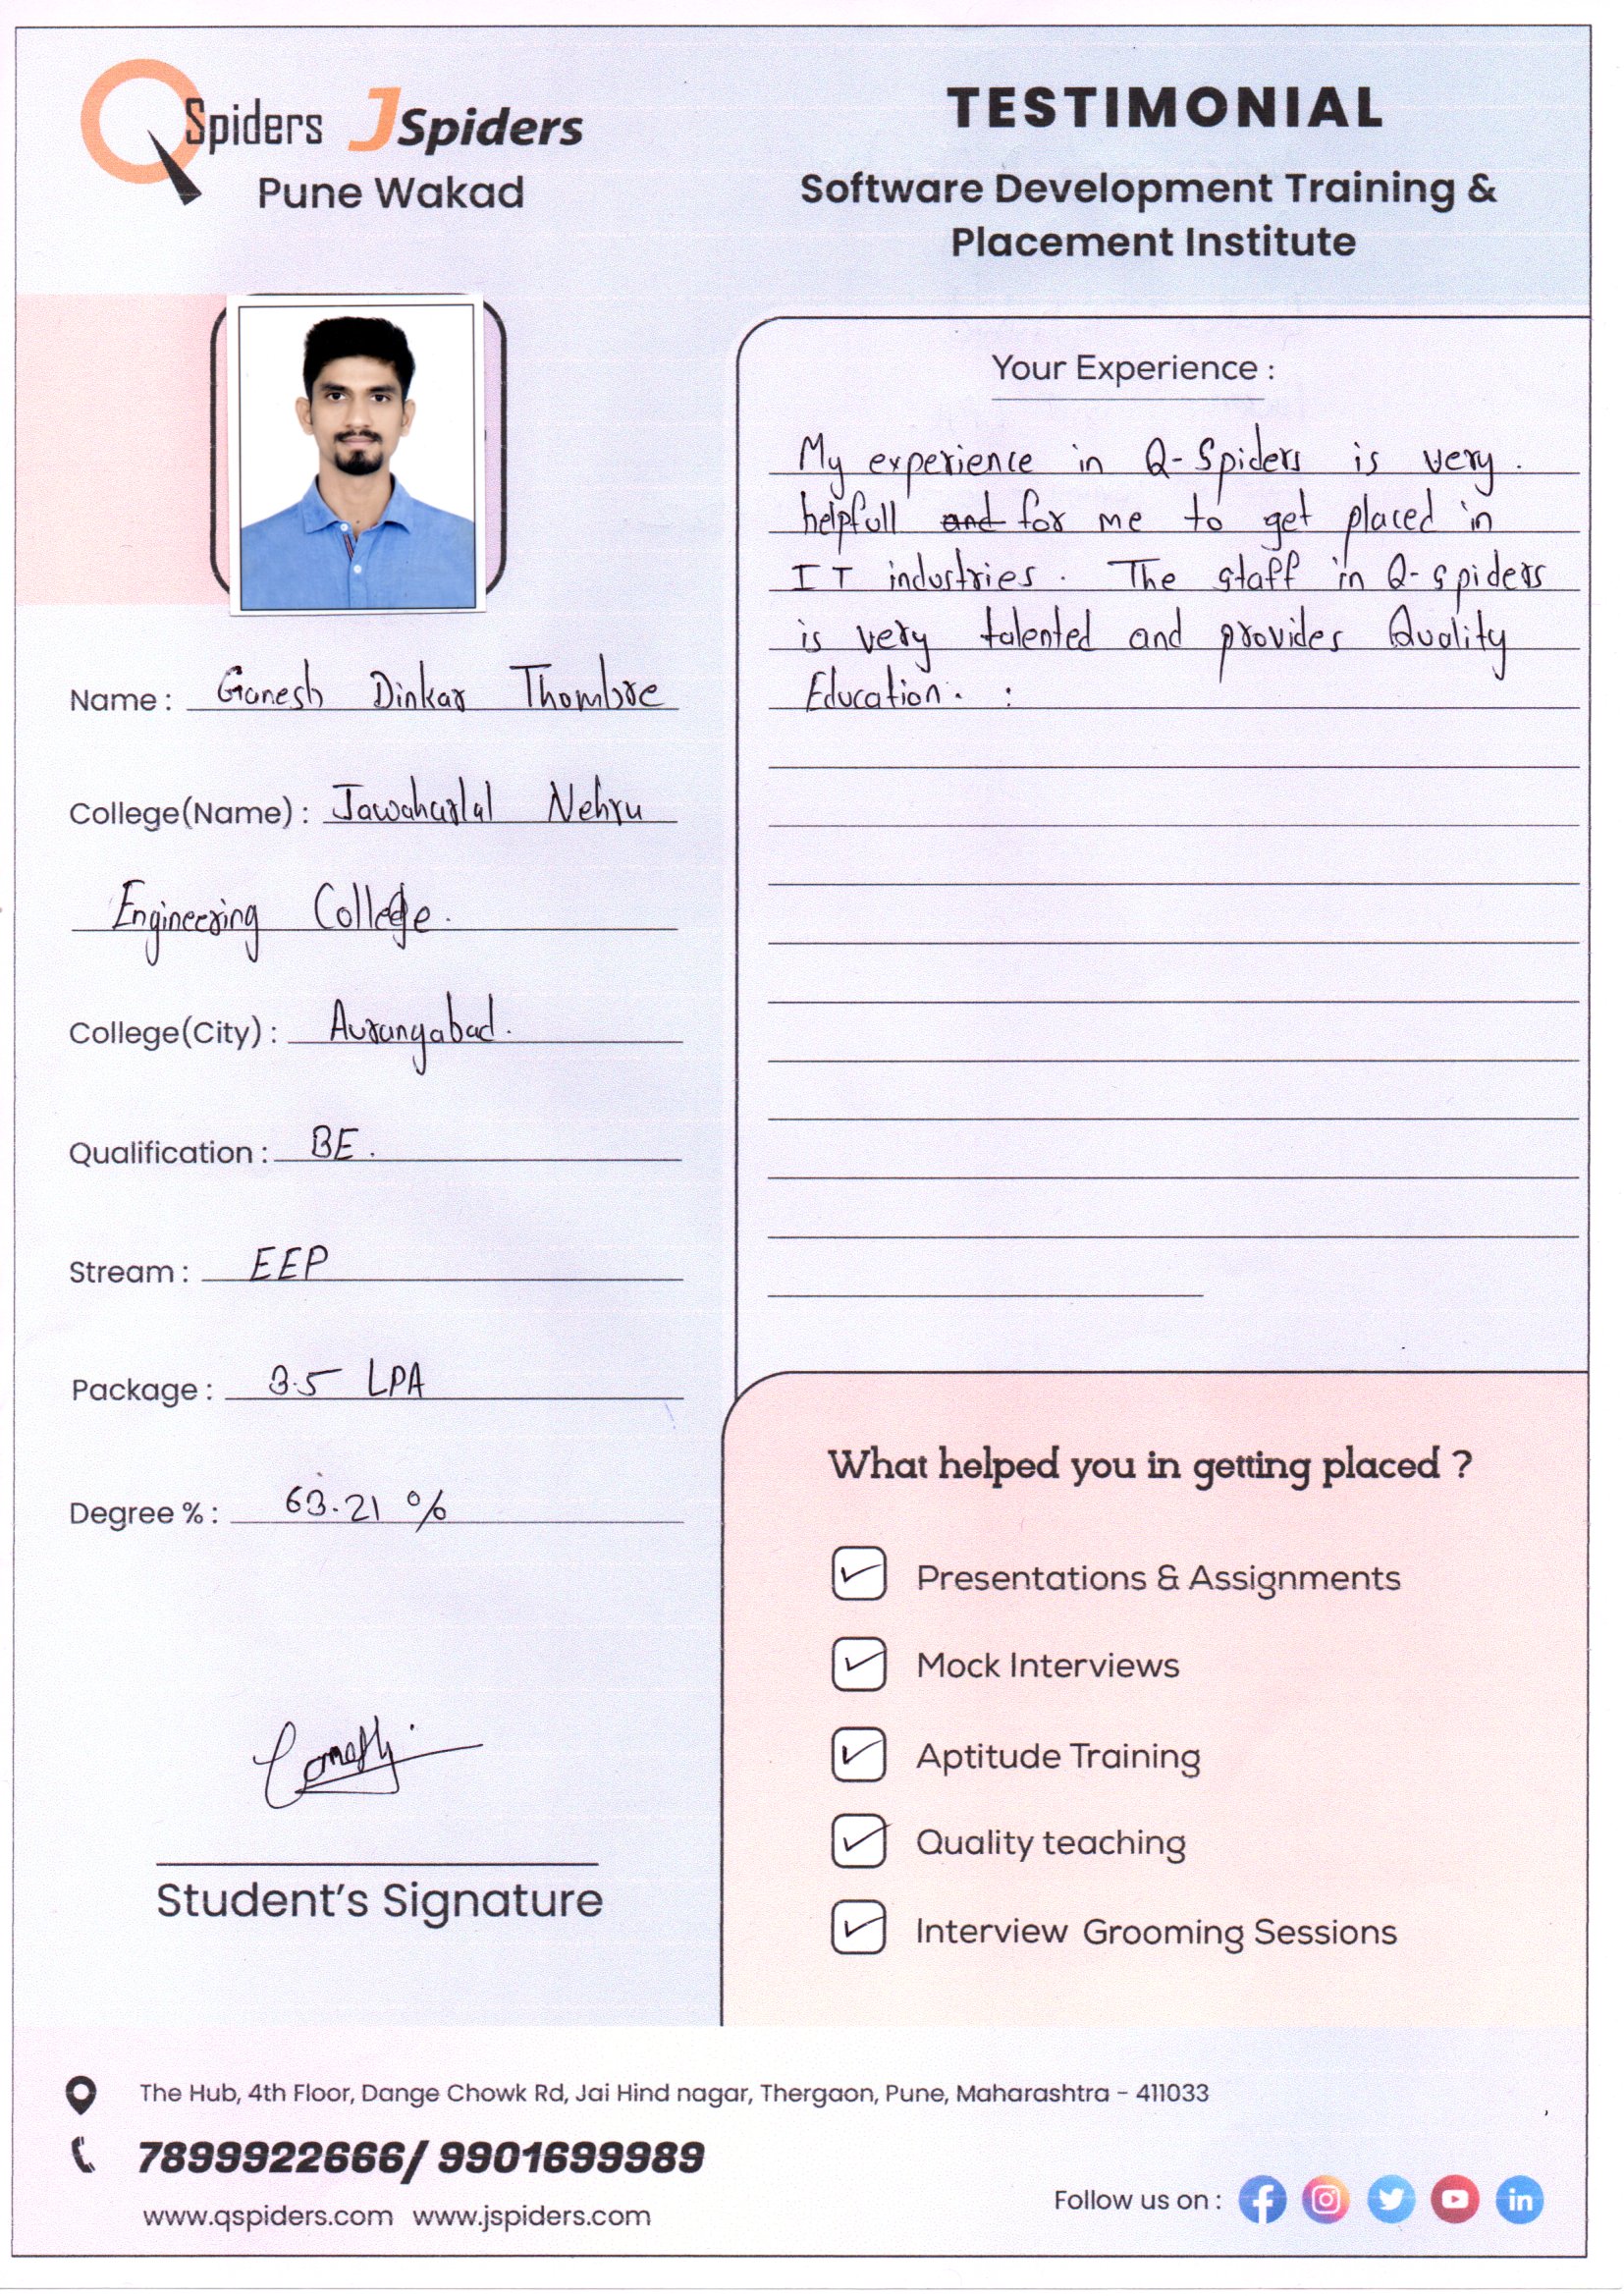 QSpiders JSpiders
Pune Wakad
TESTIMONIAL
Software Development Training &
Placement Institute
Name : Ganesh Dinkar Thombre
College(Name) : Jawaharlal Nehru
Engineering College.
College(City) : Aurangabad.
Qualification : BE.
Stream : EEP
Package : 3.5 LPA
Degree % : 63.21 %
Student's Signature
Your Experience :
My experience in Q-Spiders is very.
helpfull and for me to get placed in
IT industries. The staff in Q-spiders
is very talented and provides Quality
Education. :
What helped you in getting placed ?
Presentations & Assignments
Mock Interviews
Aptitude Training
Quality teaching
Interview Grooming Sessions
The Hub, 4th Floor, Dange Chowk Rd, Jai Hind nagar, Thergaon, Pune, Maharashtra - 411033
7899922666/ 9901699989
www.qspiders.com www.jspiders.com
Follow us on :